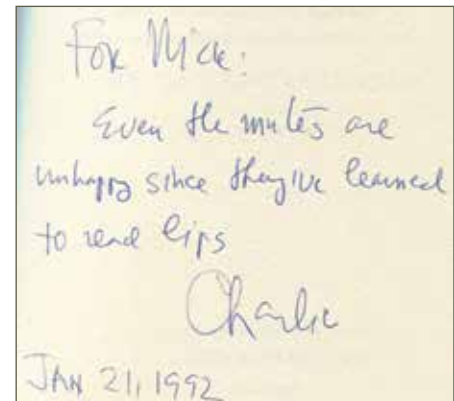 For Nick:
Even the mutes are
unhappy since they've learned
to read lips
Charlie
JAN 21, 1992